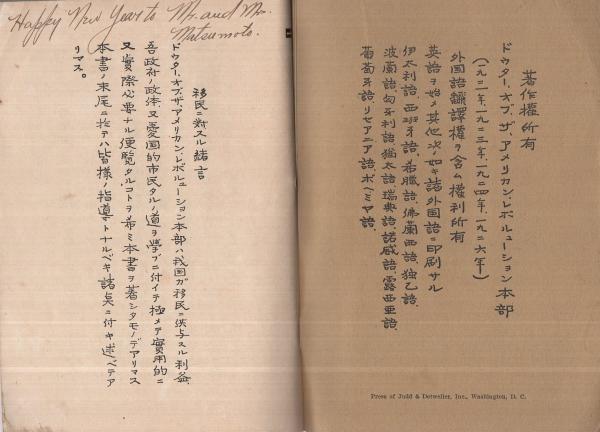 著作權所有
ドウター、オブ、ザ、アメリカン、レボルューション本部
(一九二一年、一九二三年、一九二四年、一九二六年)
外国語飜譯權ヲ含ム權利所有
英語ヲ始メ其他次ノ如キ諸外国語ニ印刷サル
伊太利語、西班牙語、希臘語、佛蘭西語、独乙語、
波蘭語、匈牙利語、猶太語、瑞典語、諾威語、露西亜語、
葡萄牙語、リセアニア語、ボヘミヤ語、
Press of Judd & Detweiler, Inc., Washington, D. C.
Happy New Year to Mr. and Mrs.
Matsumoto.
移民ニ對スル緒言
ドウター、オブ、ザ、アメリカン、レボルューション本部ハ我国ガ移民ニ供与スル利益
吾政社ノ政体、又愛国的市民タルノ道ヲ學ブニ付イテ極メテ實用的ニ
又實際必要ナル便覧タルコトヲ希ミ本書ヲ著シタモノデアリマス
本書ノ末尾ニ於テハ皆樣ノ指導トナルベキ諸点ニ付キ述ベテア
リマス。